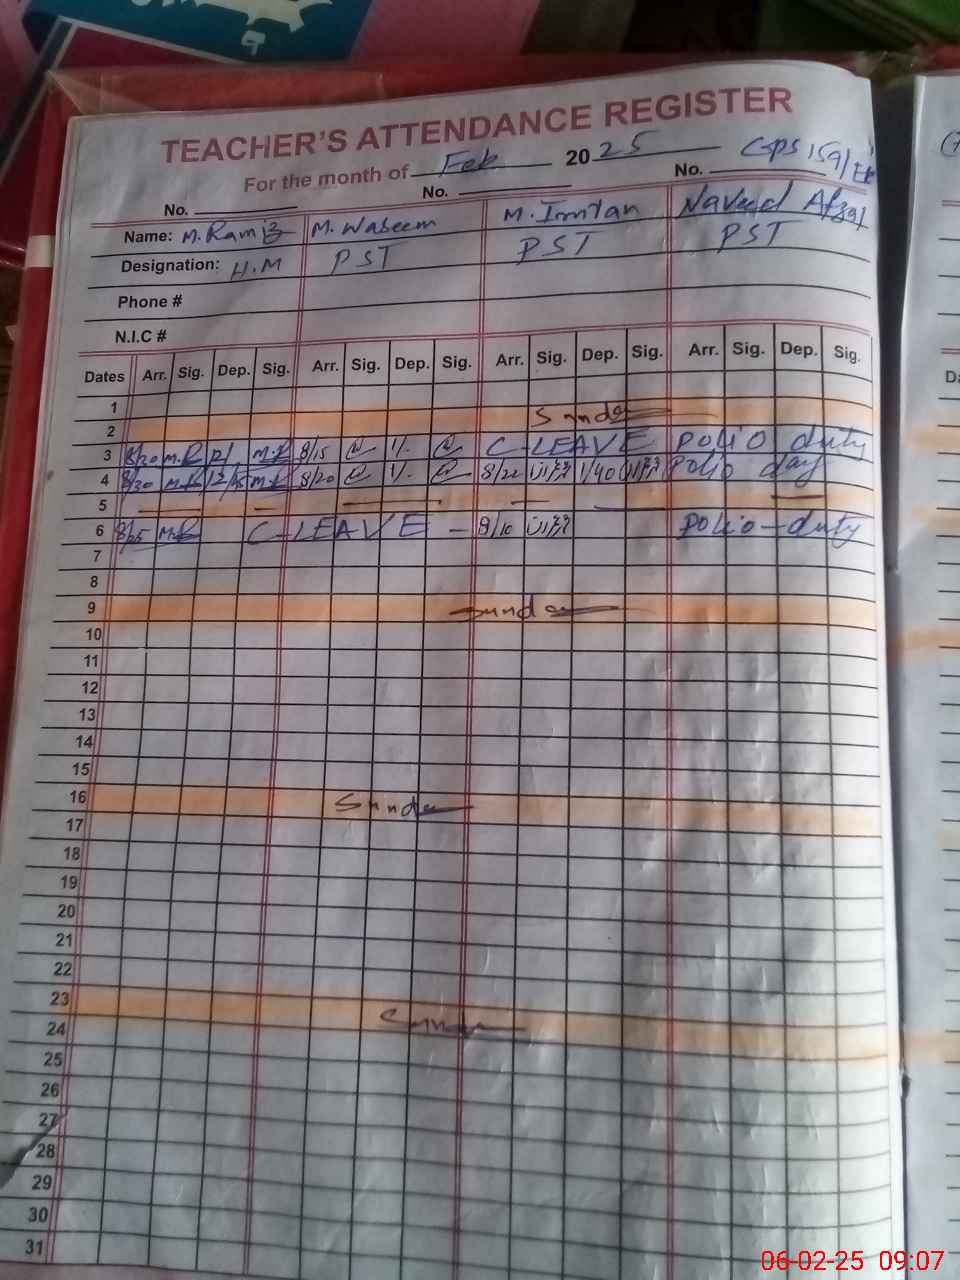 TEACHER'S ATTENDANCE REGISTER
For the month of Feb 2025
No. No. No. GPS 159/
Name: M. Ramiz M. Waseem M. Imran Naveed Afzal
Designation: H.M PST PST PST
Phone #
N.I.C #
Dates Arr. Sig. Dep. Sig. Arr. Sig. Dep. Sig. Arr. Sig. Dep. Sig. Arr. Sig. Dep. Sig.
1
2 Sunda
3 8/20 M.R M.R 8/15 1/. C-LEAVE Polio duty
4 8/30 M.R M.R 8/20 1/. 8/22 1/40 Polio day
5
6 8/25 M.R C-LEAVE 8/10 Polio-duty
7
8
9 Sunda
10
11
12
13
14
15
16 Sunda
17
18
19
20
21
22
23 Sunda
24
25
26
27
28
29
30
31
06-02-25 09:07